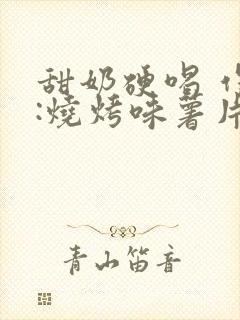 甜奶硬唱
:燒烤味薯片
青山笛音